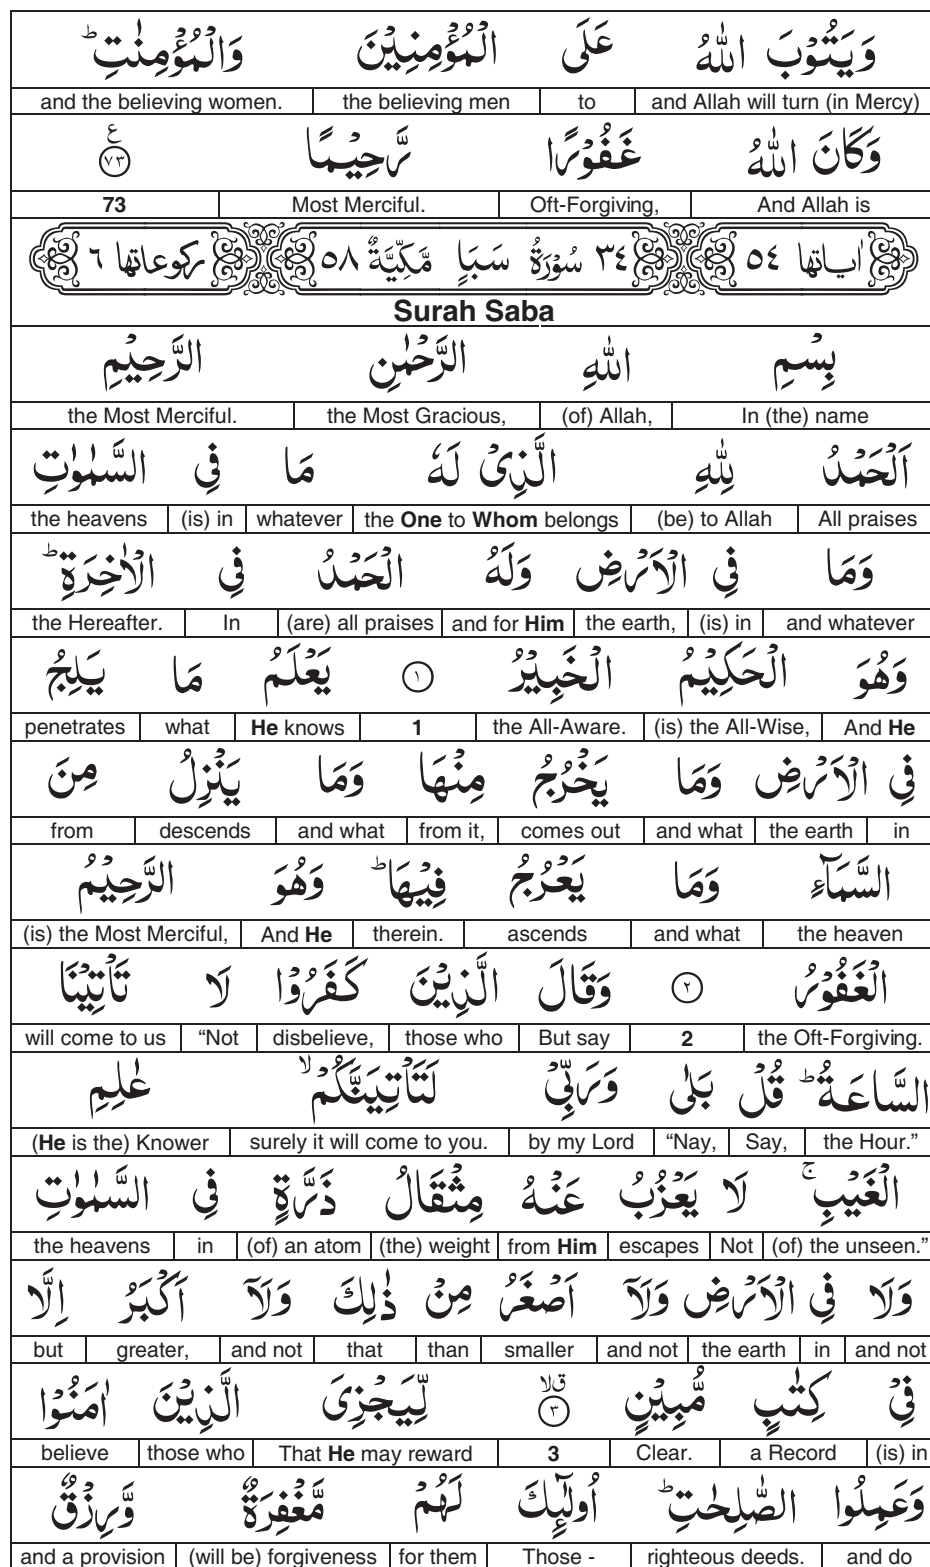 وَيَتُوْبَ اللّٰهُ عَلَى الْمُؤْمِنِيْنَ وَالْمُؤْمِنٰتِ ؕ
and Allah will turn (in Mercy) to the believing men and the believing women.
وَكَانَ اللّٰهُ غَفُوْرًا رَّحِيْمًا ع ٧٣
And Allah is Oft-Forgiving, Most Merciful. 73
اٰياتها ٥٤ ٣٤ سُوْرَةُ سَبَاٍ مَّكِّيَّةٌ ٥٨ ركوعاتها ٦
Surah Saba
بِسْمِ اللّٰهِ الرَّحْمٰنِ الرَّحِيْمِ
In (the) name (of) Allah, the Most Gracious, the Most Merciful.
اَلْحَمْدُ لِلّٰهِ الَّذِىْ لَهٗ مَا فِى السَّمٰوٰتِ
All praises (be) to Allah the One to Whom belongs whatever (is) in the heavens
وَمَا فِى الْاَرْضِ وَلَهُ الْحَمْدُ فِى الْاٰخِرَةِ ؕ
and whatever (is) in the earth, and for Him (are) all praises In the Hereafter.
وَهُوَ الْحَكِيْمُ الْخَبِيْرُ ١ يَعْلَمُ مَا يَلِجُ
And He (is) the All-Wise, the All-Aware. 1 He knows what penetrates
فِى الْاَرْضِ وَمَا يَخْرُجُ مِنْهَا وَمَا يَنْزِلُ مِنَ
in the earth and what comes out from it, and what descends from
السَّمَآءِ وَمَا يَعْرُجُ فِيْهَا ؕ وَهُوَ الرَّحِيْمُ
the heaven and what ascends therein. And He (is) the Most Merciful,
الْغَفُوْرُ ٢ وَقَالَ الَّذِيْنَ كَفَرُوْا لَا تَاْتِيْنَا
the Oft-Forgiving. 2 But say those who disbelieve, “Not will come to us
السَّاعَةُ ؕ قُلْ بَلٰى وَرَبِّىْ لَتَاْتِيَنَّكُمْ ۙ عٰلِمِ
the Hour.” Say, “Nay, by my Lord surely it will come to you. (He is the) Knower
الْغَيْبِ ۚ لَا يَعْزُبُ عَنْهُ مِثْقَالُ ذَرَّةٍ فِى السَّمٰوٰتِ
(of) the unseen.” Not escapes from Him (the) weight (of) an atom in the heavens
وَلَا فِى الْاَرْضِ وَلَآ اَصْغَرُ مِنْ ذٰلِكَ وَلَآ اَكْبَرُ اِلَّا
and not in the earth and not smaller than that and not greater, but
فِىْ كِتٰبٍ مُّبِيْنٍ ٣ قلا لِّيَجْزِىَ الَّذِيْنَ اٰمَنُوْا
(is) in a Record Clear. 3 That He may reward those who believe
وَعَمِلُوا الصّٰلِحٰتِ ؕ اُولٰٓئِكَ لَهُمْ مَّغْفِرَةٌ وَّرِزْقٌ
and do righteous deeds. Those - for them (will be) forgiveness and a provision